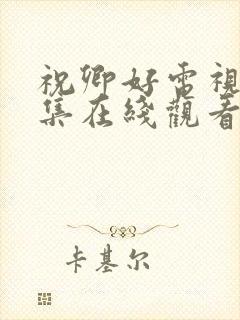 祝卿好電視
集在綫觀看
卡基尔